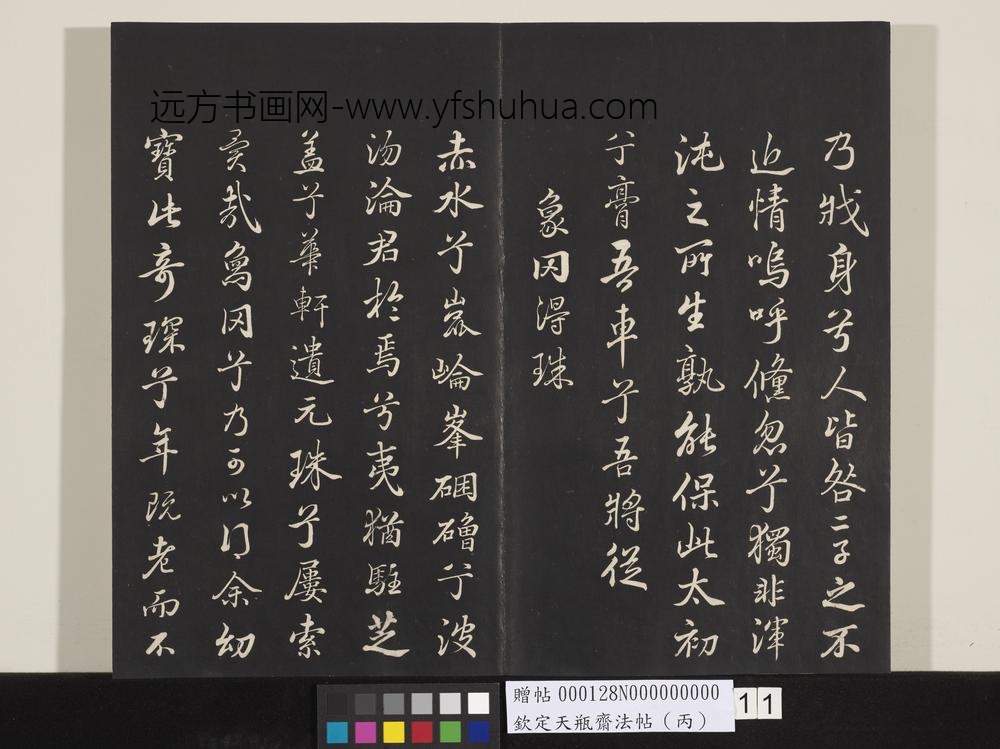 远方书画网-www.yfshuhua.com
乃戕身兮人皆咎二子之不
近情嗚呼儵忽兮獨非渾
沌之所生孰能保此太初
兮膏吾車兮吾將從
象罔得珠
赤水兮崑崙峯硱磳兮波
沕淪君於焉兮夷猶駐芝
盖兮華軒遺元珠兮屢索
異哉象罔兮乃可以得余幼
寶此奇琛兮年既老而不
贈帖 000128N000000000
欽定天瓶齋法帖(丙)
11